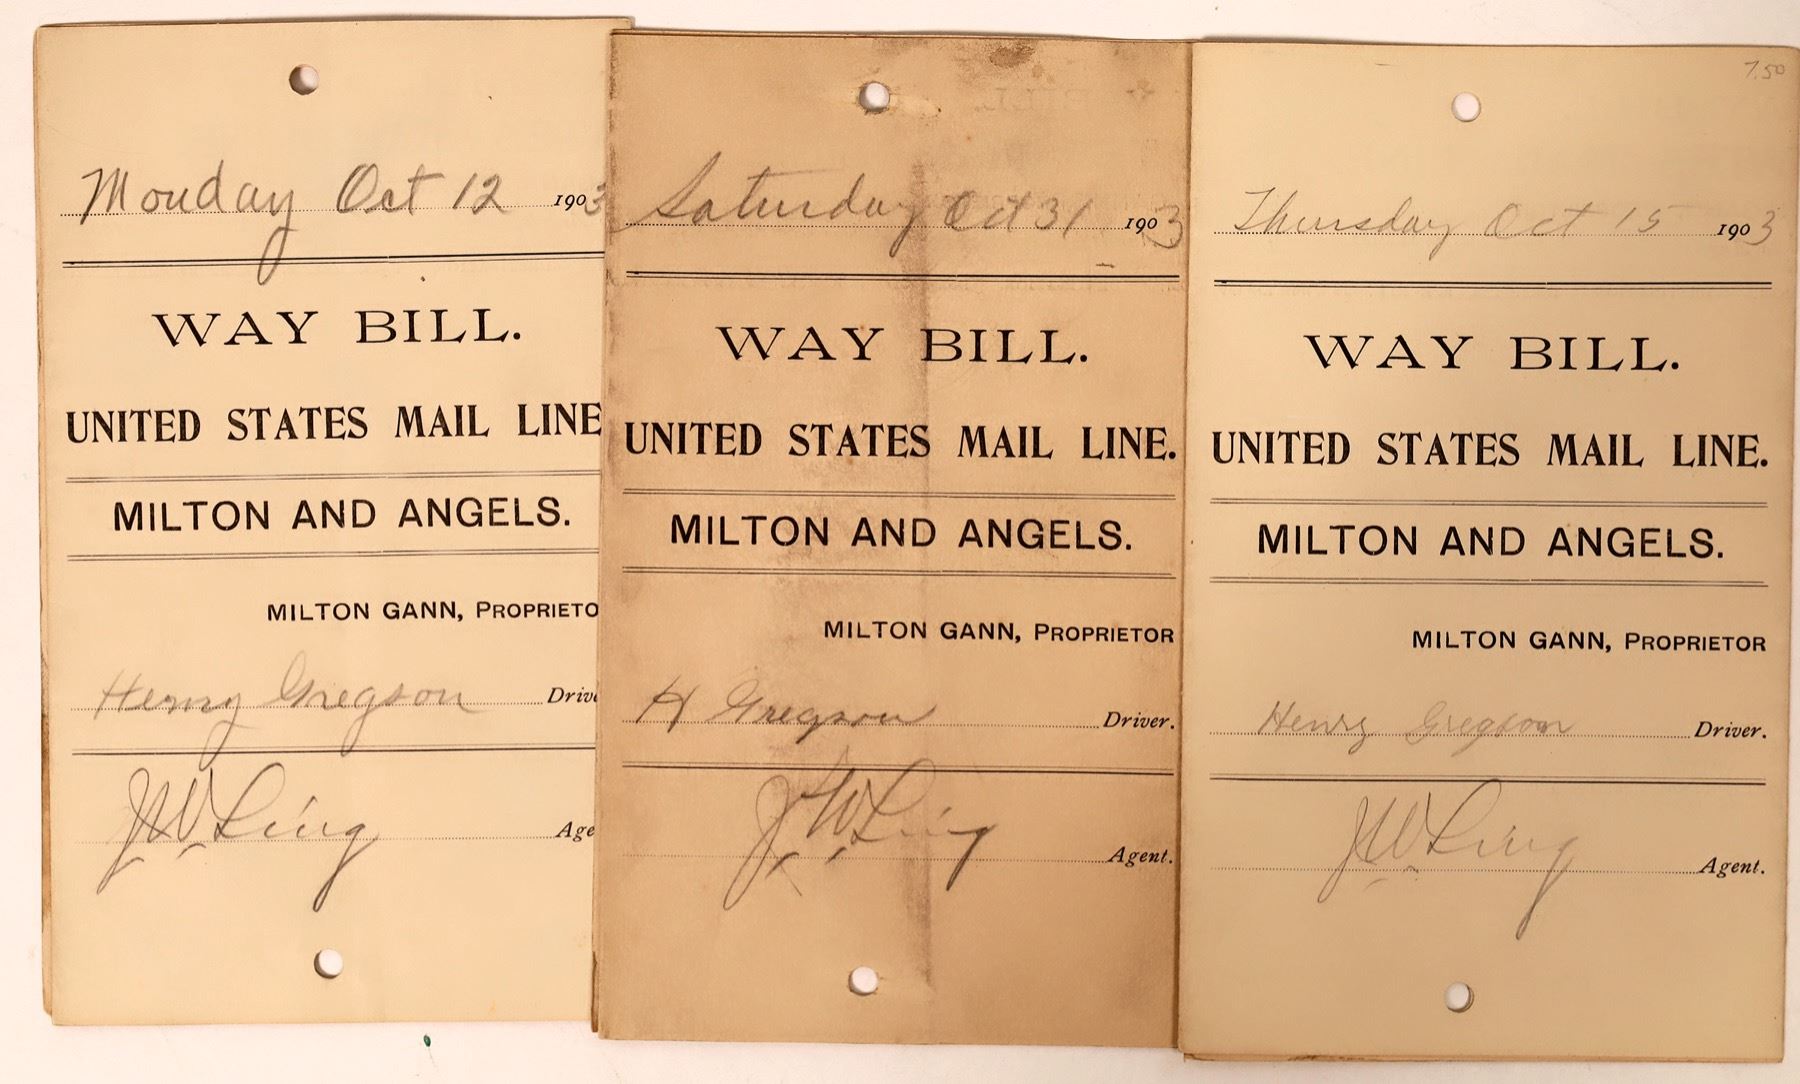 Monday Oct 12 1903
WAY BILL.
UNITED STATES MAIL LINE
MILTON AND ANGELS.
MILTON GANN, PROPRIETO
Henry Gregson Drive
J W Ling Age
Saturday Oct 31 1903
WAY BILL.
UNITED STATES MAIL LINE.
MILTON AND ANGELS.
MILTON GANN, PROPRIETOR
H Gregson Driver.
J W Ling Agent.
7.50
Thursday Oct 15 1903
WAY BILL.
UNITED STATES MAIL LINE.
MILTON AND ANGELS.
MILTON GANN, PROPRIETOR
Henry Gregson Driver.
J W Ling Agent.